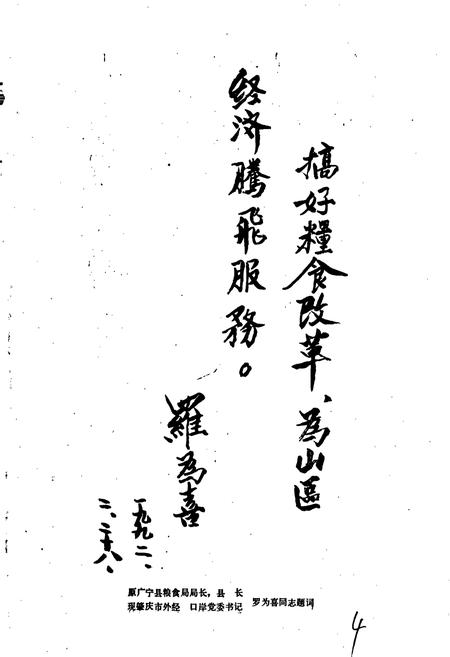 搞好糧食改革、為山區
经济騰飛服務。
羅為喜
一九九二、
二、二十八、
原广宁县粮食局局长，县长
现肇庆市外经 口岸党委书记 罗为喜同志题词
4